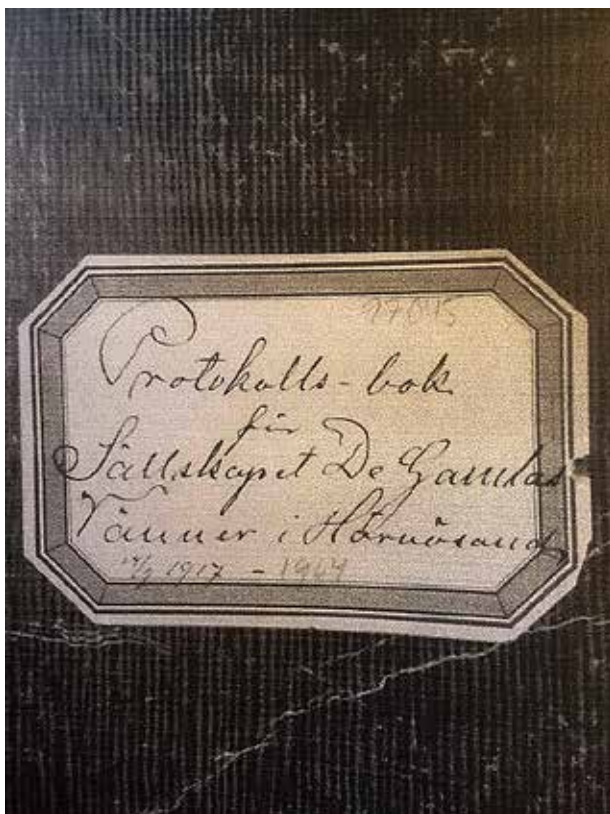 Protokolls-bok
för
Sällskapet De Gamlas
Vänner i Härnösand
1917 - 19